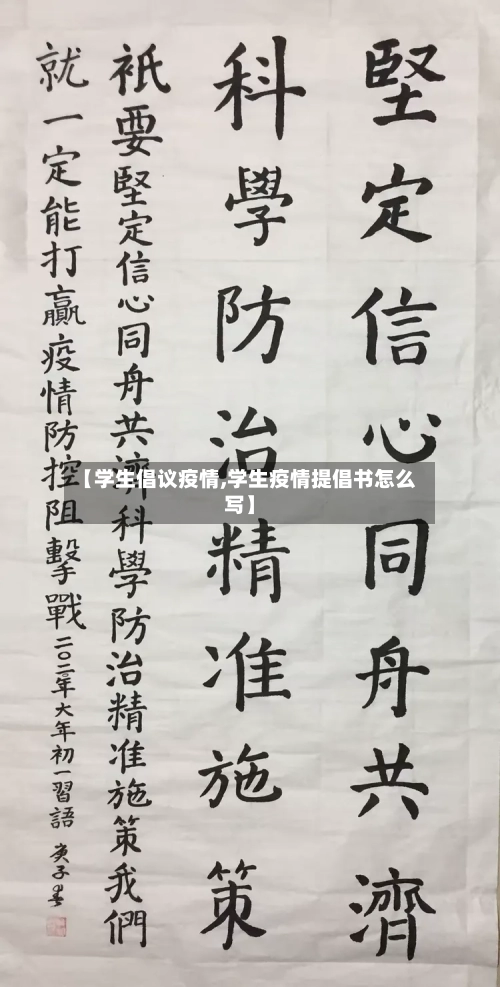 堅定信心同舟共濟
科學防治精准施策
衹要堅定信心同舟共濟科學防治精准施策我們
就一定能打贏疫情防控阻擊戰 二〇二〇年大年初一習語 庚子
【学生倡议疫情,学生疫情提倡书怎么
写】